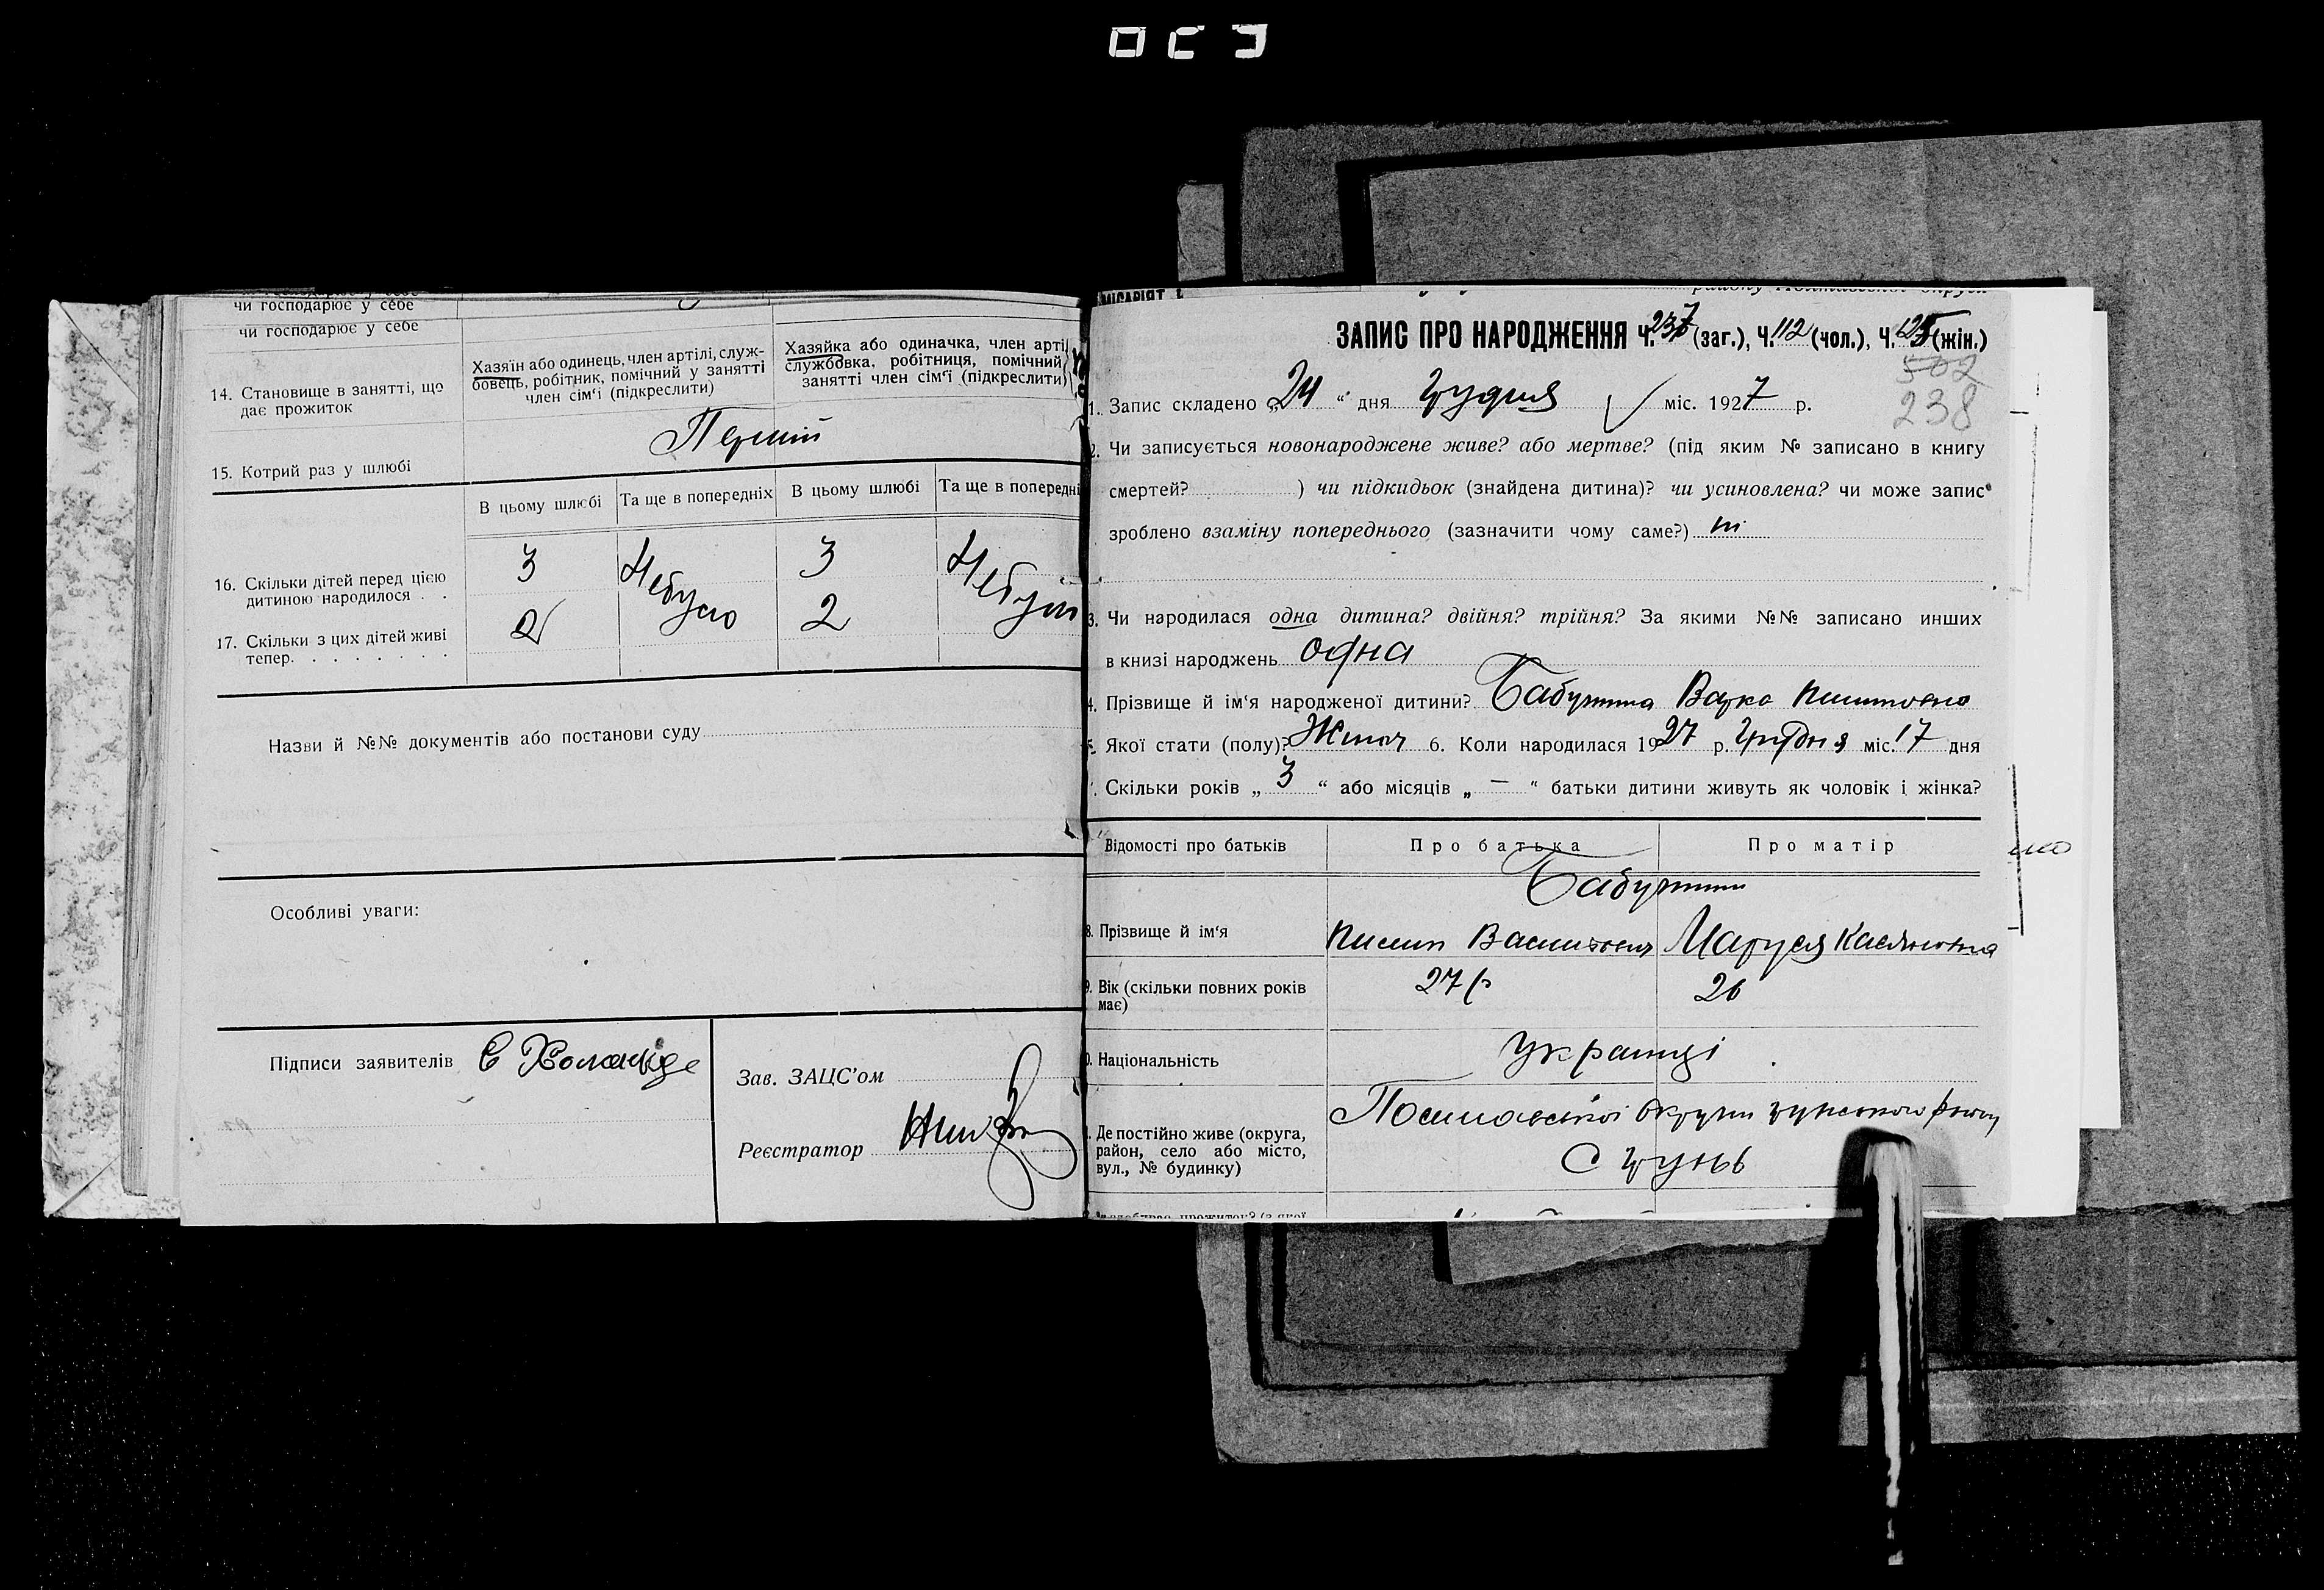 чи господарює у себе
чи господарює у себе
14. Становище в занятті, що
дає прожиток
Хазяїн або одинець, член артілі, служ-
бовець, робітник, помічний у занятті
член сім'ї (підкреслити)
Хазяйка або одиначка, член арті
службовка, робітниця, помічний
занятті член сім'ї (підкреслити)
15. Котрий раз у шлюбі
Перший
В цьому шлюбі Та ще в попередніх В цьому шлюбі Та ще в попередні
16. Скільки дітей перед цією
дитиною народилося . .
3 Небуло 3 Небуло
17. Скільки з цих дітей живі
тепер. . . . . . . .
2 2
Назви й №№ документів або постанови суду
Особливі уваги:
Підписи заявителів
Зав. ЗАЦС'ом
Реєстратор
ЗАПИС ПРО НАРОДЖЕННЯ Ч. 237 (заг.), Ч. 112 (чол.), Ч. 125 (жін.)
502
238
1. Запис складено „24“ дня Грудня міс. 1927 р.
2. Чи записується новонароджене живе? або мертве? (під яким № записано в книгу
смертей? ) чи підкидьок (знайдена дитина)? чи усиновлена? чи може запис
зроблено взаміну попереднього (зазначити чому саме?) ні
3. Чи народилася одна дитина? двійня? трійня? За якими №№ записано инших
в книзі народжень одна
4. Прізвище й ім'я народженої дитини? Варка
5. Якої стати (полу)? Жіноч 6. Коли народилася 1927 р. Грудня міс. 17 дня
Скільки років „3“ або місяців „—“ батьки дитини живуть як чоловік і жінка?
Відомості про батьків Про батька Про матір
8. Прізвище й ім'я
Маруся Касянівна
9. Вік (скільки повних років
має)
27 р 26
Національність
Українці
Де постійно живе (округа,
район, село або місто,
вул., № будинку)
Полтавської округи Грунського району
С Грунь